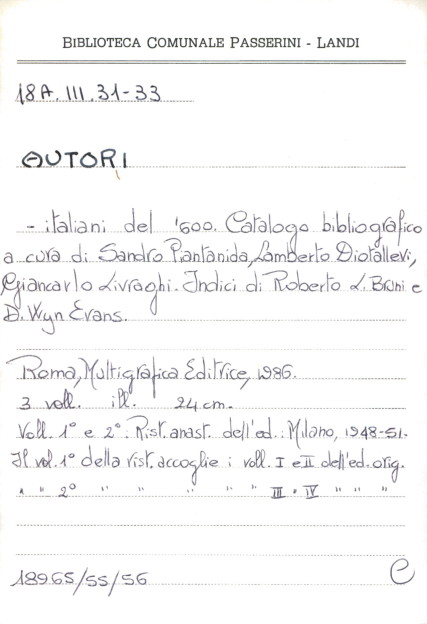 BIBLIOTECA COMUNALE PASSERINI - LANDI
18A. III. 31-33
AUTORI
- italiani del '600. Catalogo bibliografico
a cura di Sandro Piantanida, Lamberto Diotallevi,
Giancarlo Livraghi. Indici di Roberto L. Bruni e
D. Wyn Evans.
Roma, Multigrafica Editrice, 1986.
3 voll. ill. 24 cm.
Voll. 1° e 2°: Rist. anast. dell'ed.: Milano, 1948-51.
Il vol. 1° della rist. accoglie i voll. I e II dell'ed. orig.
" " 2° " " " " " III e IV " " "
18965/55/56
C